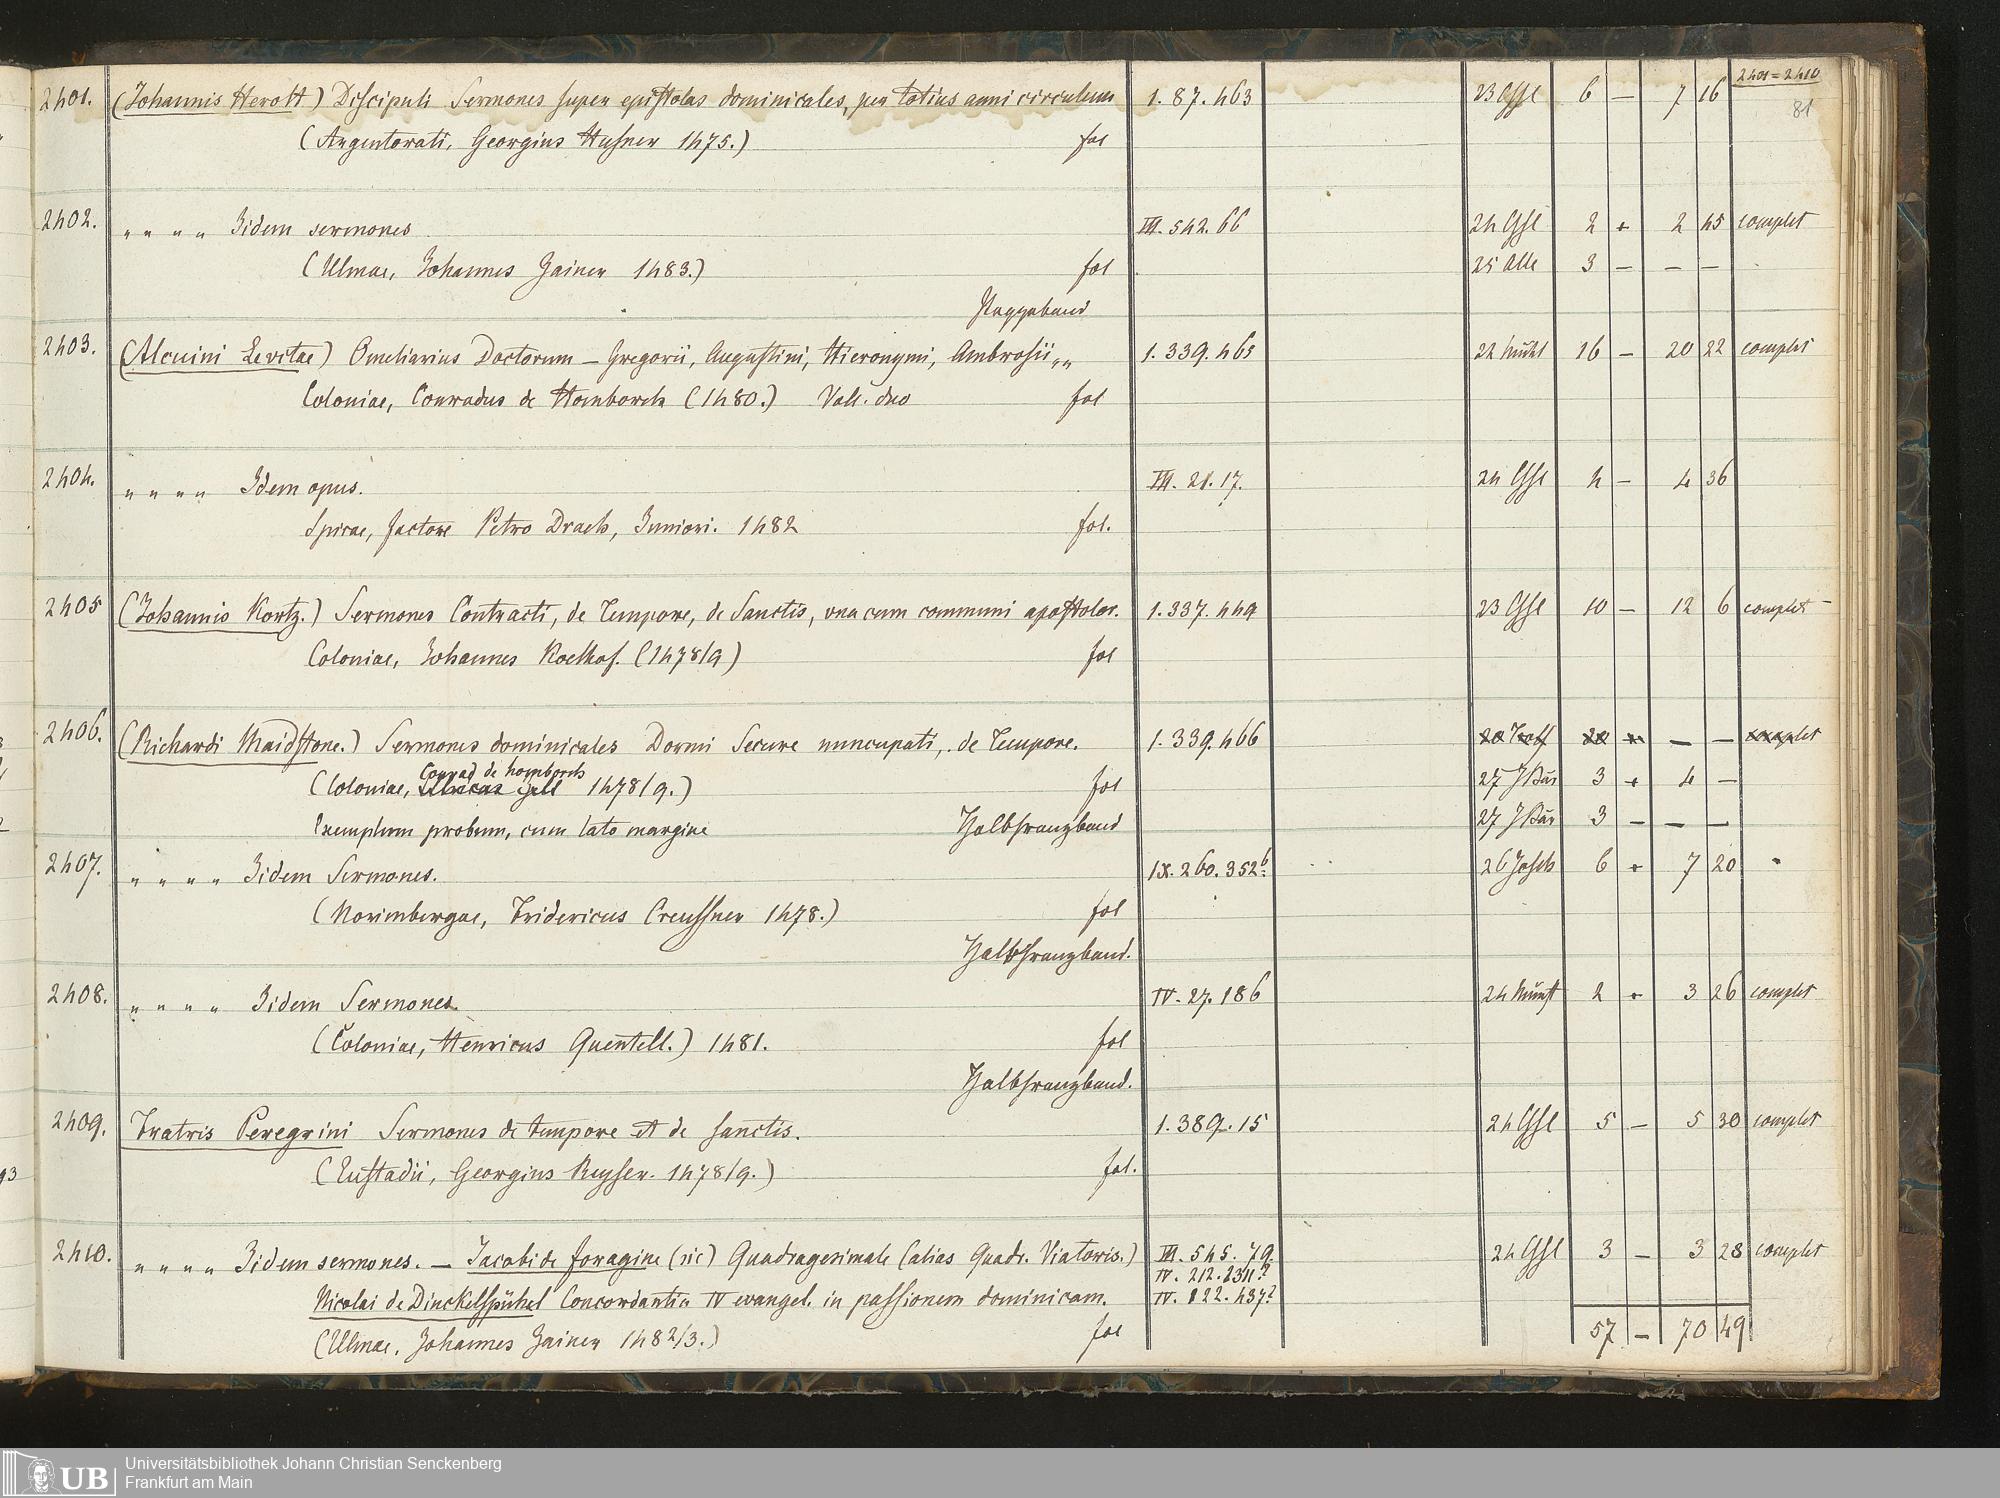 2401 = 2410
81
2401. (Johannis Herolt) Discipuli Sermones super epistolas dominicales, per totius anni circulum 1. 87. 463 23 6 — 7 16
(Argentorati, Georgius Husner 1475.) fol
2402. " " " " Iidem sermones III. 542. 66 24 2 + 2 45 complet
(Ulmae, Johannes Zainer 1483.) fol 25 3 — — —
Pappband
2403. (Alcuini Levitae) Omeliarius Doctorum — Gregorii, Augustini, Hieronymi, Ambrosii „ „ 1. 339. 465 22 16 — 20 22 complet
Coloniae, Conradus de Homborch (1480.) Voll. duo fol
2404. " " " " Idem opus. III. 21. 17. 24 4 — 4 36
Spirae, factore Petro Drach, Juniori. 1482 fol.
2405 (Johannis Kortz.) Sermones Contracti, de Tempore, de Sanctis, una cum communi apostolor. 1. 337. 449 23 10 — 12 6 complet
Coloniae, Johannes Koelhof. (1478/9) fol
2406. (Richardi Maidstone.) Sermones dominicales Dormi Secure nuncupati, de Tempore. 1. 339. 466 20 20 — — complet
Conrad de homborch
(Coloniae, 1478/9.) fol 27 J Bär 3 + 4 —
Exemplum probum, cum lato margine Halbfranzband 27 J Bär 3 — — —
2407. " " " " Iidem Sermones. IX. 260. 352 b. 26 6 + 7 20 "
(Norimbergae, Fridericus Creussner 1478.) fol
Halbfranzband.
2408. " " " " Iidem Sermones. IV. 27. 186 24 2 + 3 26 complet
(Coloniae, Henricus Quentell.) 1481. fol
Halbfranzband.
2409. Fratris Peregrini Sermones de tempore et de sanctis. 1. 389. 15 24 5 — 5 30 complet
(Eustadii, Georgius Reyser. 1478/9.) fol.
2410. " " " " Iidem sermones. — Jacobi de foragine (sic) Quadragesimale (alias Quadr. Viatoris.) III. 545. 79. 24 3 — 3 28 complet
IV. 212. 234.?
Nicolai de Dinckelspühel Concordantia IV evangel. in passionem dominicam. IV. 122. 437?
(Ulmae, Johannes Zainer 1482/3.) fol 57 — 70 49
UB Universitätsbibliothek Johann Christian Senckenberg
Frankfurt am Main